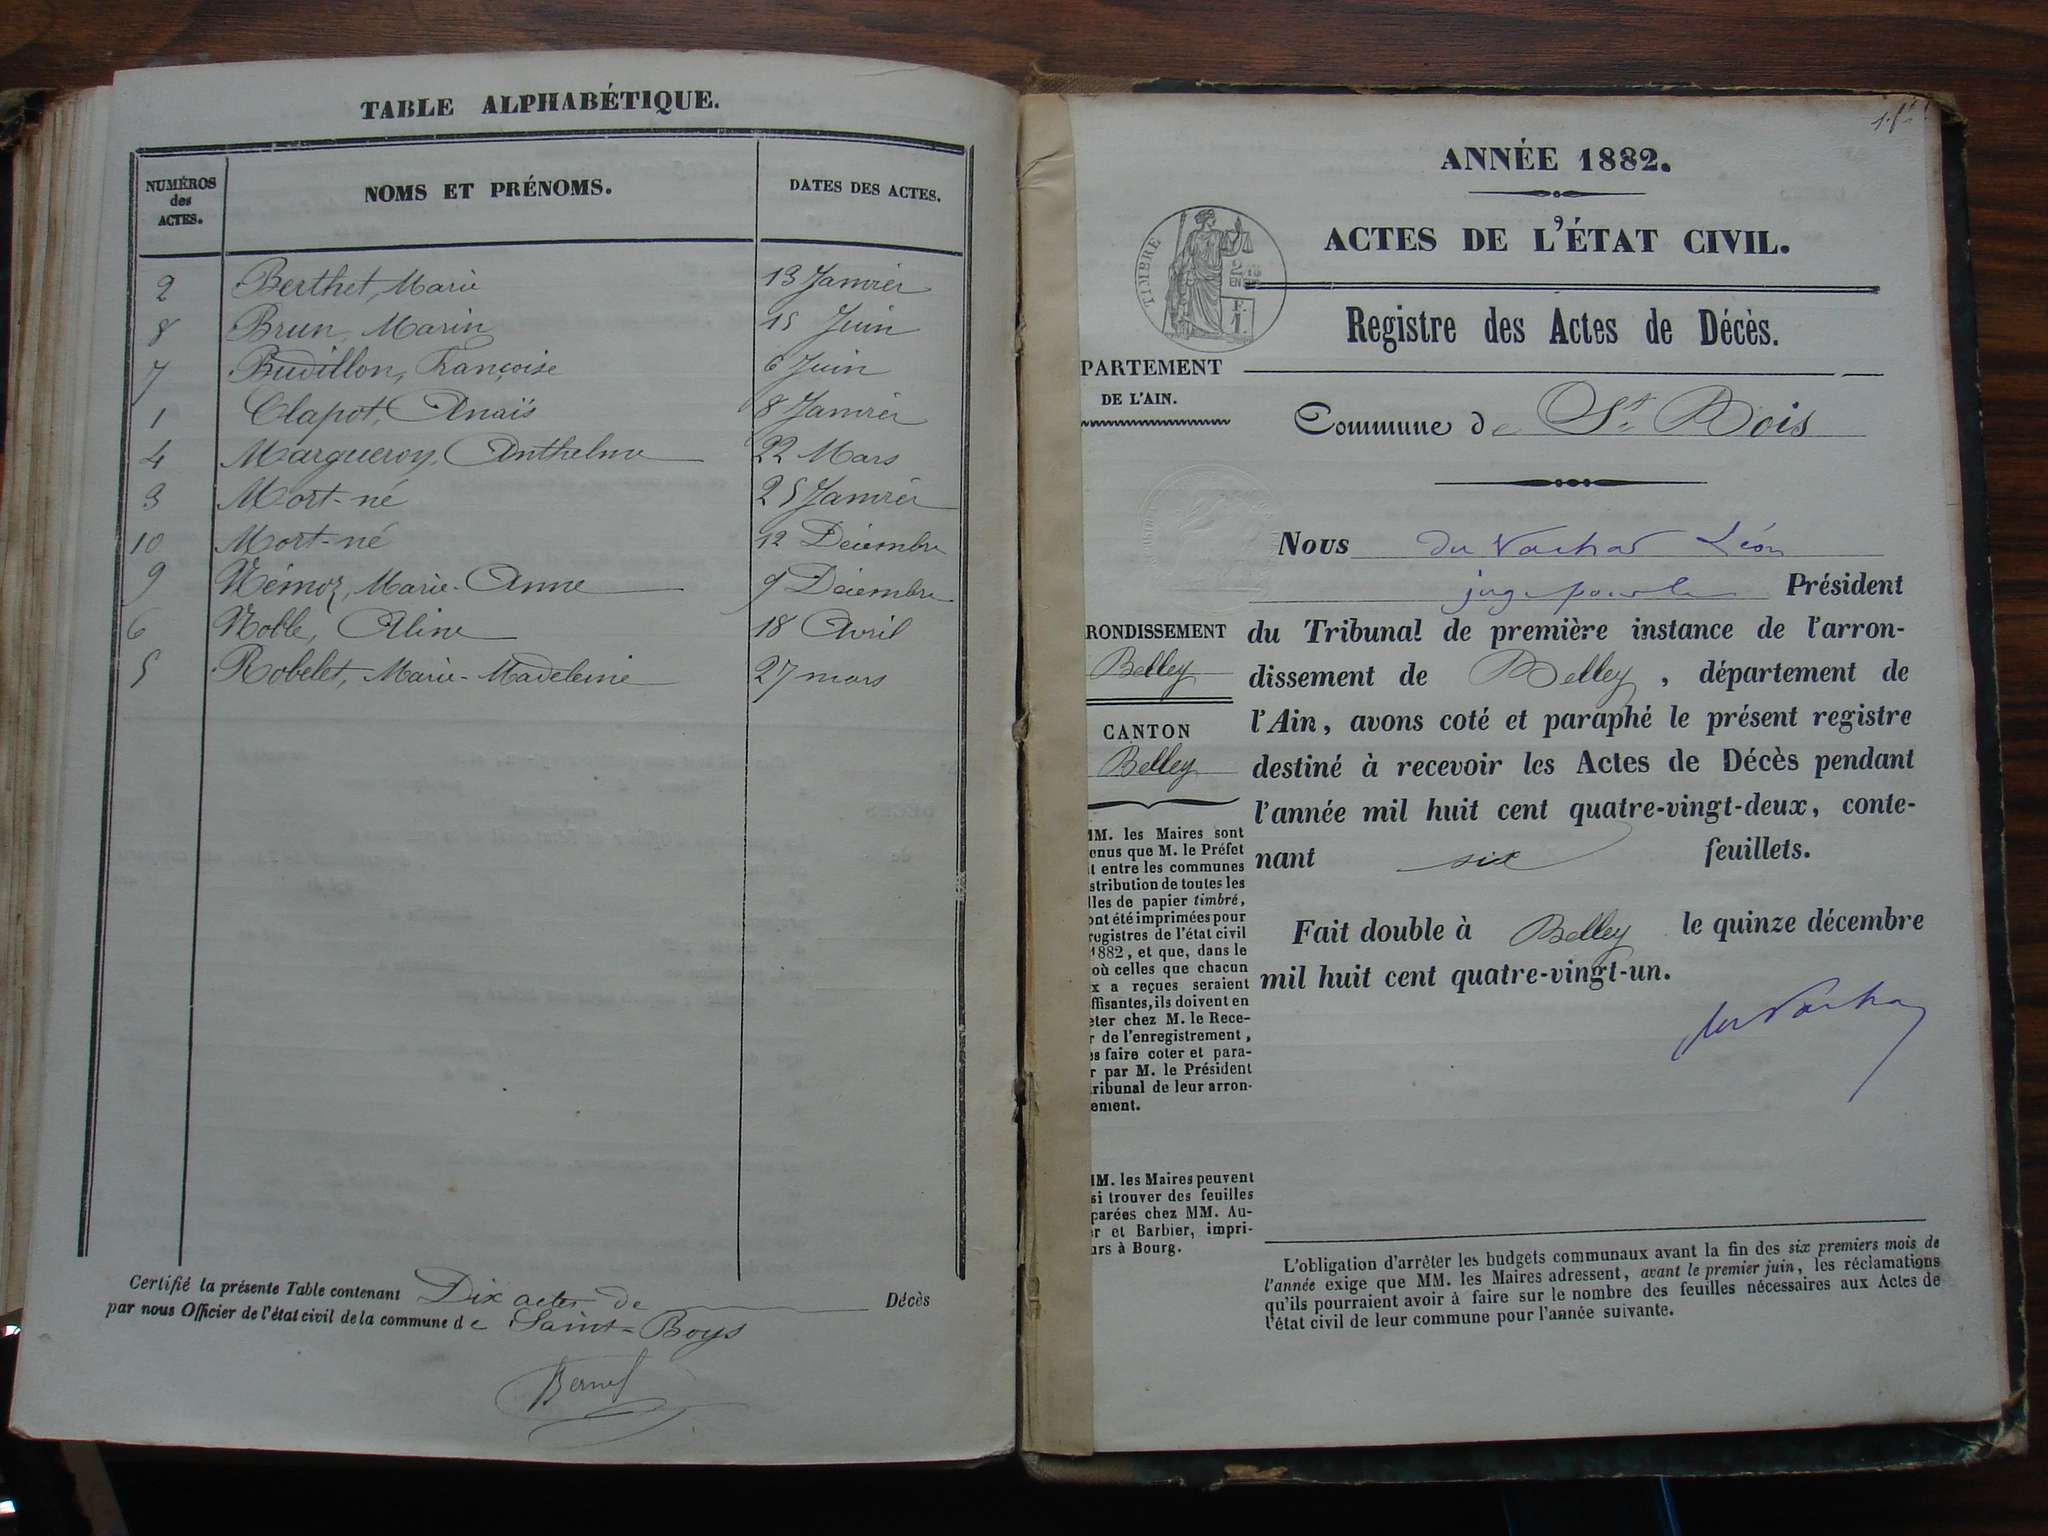 TABLE ALPHABÉTIQUE.
NUMÉROS des ACTES. NOMS ET PRÉNOMS. DATES DES ACTES.
2 Berthet, Marie 13 Janvier
8 Brun, Marin 15 Juin
7 Budillon, Françoise 6 Juin
1 Clapot, Anaïs 8 Janvier
4 Margueron, Anthelme 22 Mars
3 Mort-né 25 Janvier
10 Mort-né 12 Décembre
9 Némoz, Marie-Anne 9 Décembre
6 Noble, Aline 18 Avril
5 Robelet, Marie-Madeleine 27 mars
Certifié la présente Table contenant Dix actes de Décès
par nous Officier de l'état civil de la commune de Saint-Boys
ANNÉE 1882.
ACTES DE L'ÉTAT CIVIL.
TIMBRE
Registre des Actes de Décès.
PARTEMENT
DE L'AIN.
Commune de St Bois
Nous du Vachat Léon
juge pour le Président
du Tribunal de première instance de l'arron-
dissement de Belley, département de
l'Ain, avons coté et paraphé le présent registre
destiné à recevoir les Actes de Décès pendant
l'année mil huit cent quatre-vingt-deux, conte-
nant six feuillets.
Fait double à Belley le quinze décembre
mil huit cent quatre-vingt-un.
RONDISSEMENT
Belley
CANTON
Belley
MM. les Maires sont
enus que M. le Préfet
it entre les communes
stribution de toutes les
lles de papier timbré,
ont été imprimées pour
registres de l'état civil
1882, et que, dans le
où celles que chacun
x a reçues seraient
ffisantes, ils doivent en
eter chez M. le Rece-
r de l'enregistrement,
es faire coter et para-
r par M. le Président
tribunal de leur arron-
ement.
MM. les Maires peuvent
si trouver des feuilles
parées chez MM. Au-
er et Barbier, impri-
urs à Bourg.
L'obligation d'arrêter les budgets communaux avant la fin des six premiers mois de
l'année exige que MM. les Maires adressent, avant le premier juin, les réclamations
qu'ils pourraient avoir à faire sur le nombre des feuilles nécessaires aux Actes de
l'état civil de leur commune pour l'année suivante.